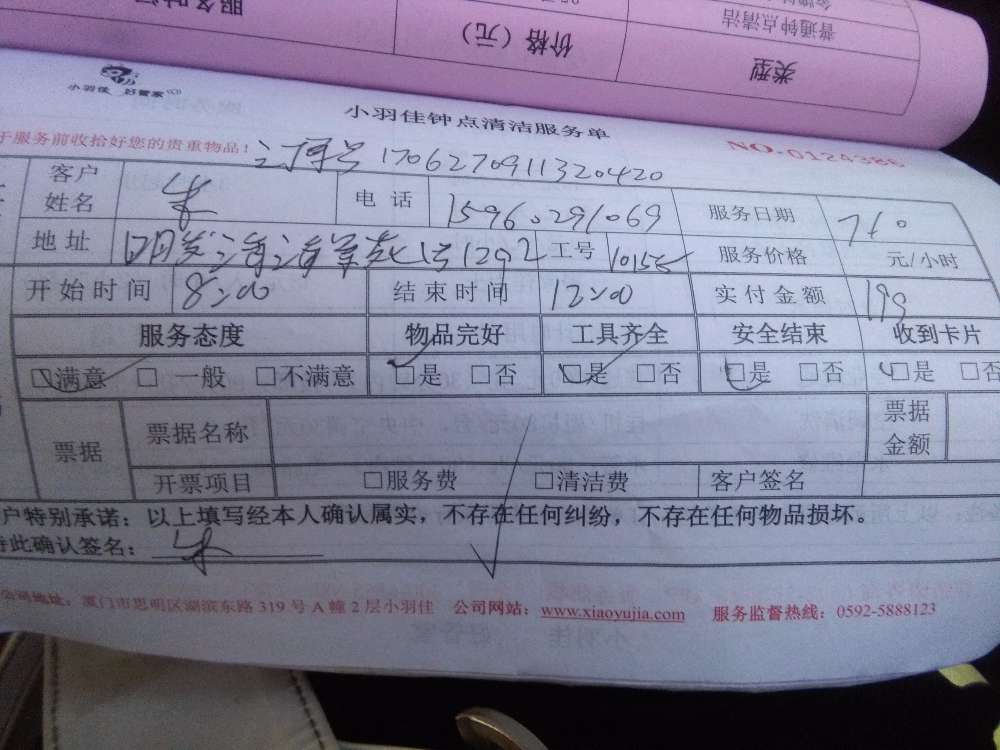 服务时间
价格（元）
类型
普通钟点清洁
小羽佳 好管家
小羽佳钟点清洁服务单
于服务前收拾好您的贵重物品！
订单号 1706270911320420
NO.0124386
客户姓名 朱 电话 15960291069 服务日期 7.10
地址 1号1292 工号 10155 服务价格 元/小时
开始时间 8:00 结束时间 12:00 实付金额 199
服务态度 物品完好 工具齐全 安全结束 收到卡片
☑满意 □一般 □不满意 ☑是 □否 ☑是 □否 ☑是 □否 ☑是 □否
票据 票据名称 票据金额
开票项目 □服务费 □清洁费 客户签名
户特别承诺：以上填写经本人确认属实，不存在任何纠纷，不存在任何物品损坏。
特此确认签名：朱
公司地址：厦门市思明区湖滨东路319号A幢2层小羽佳 公司网站：www.xiaoyujia.com 服务监督热线：0592-5888123